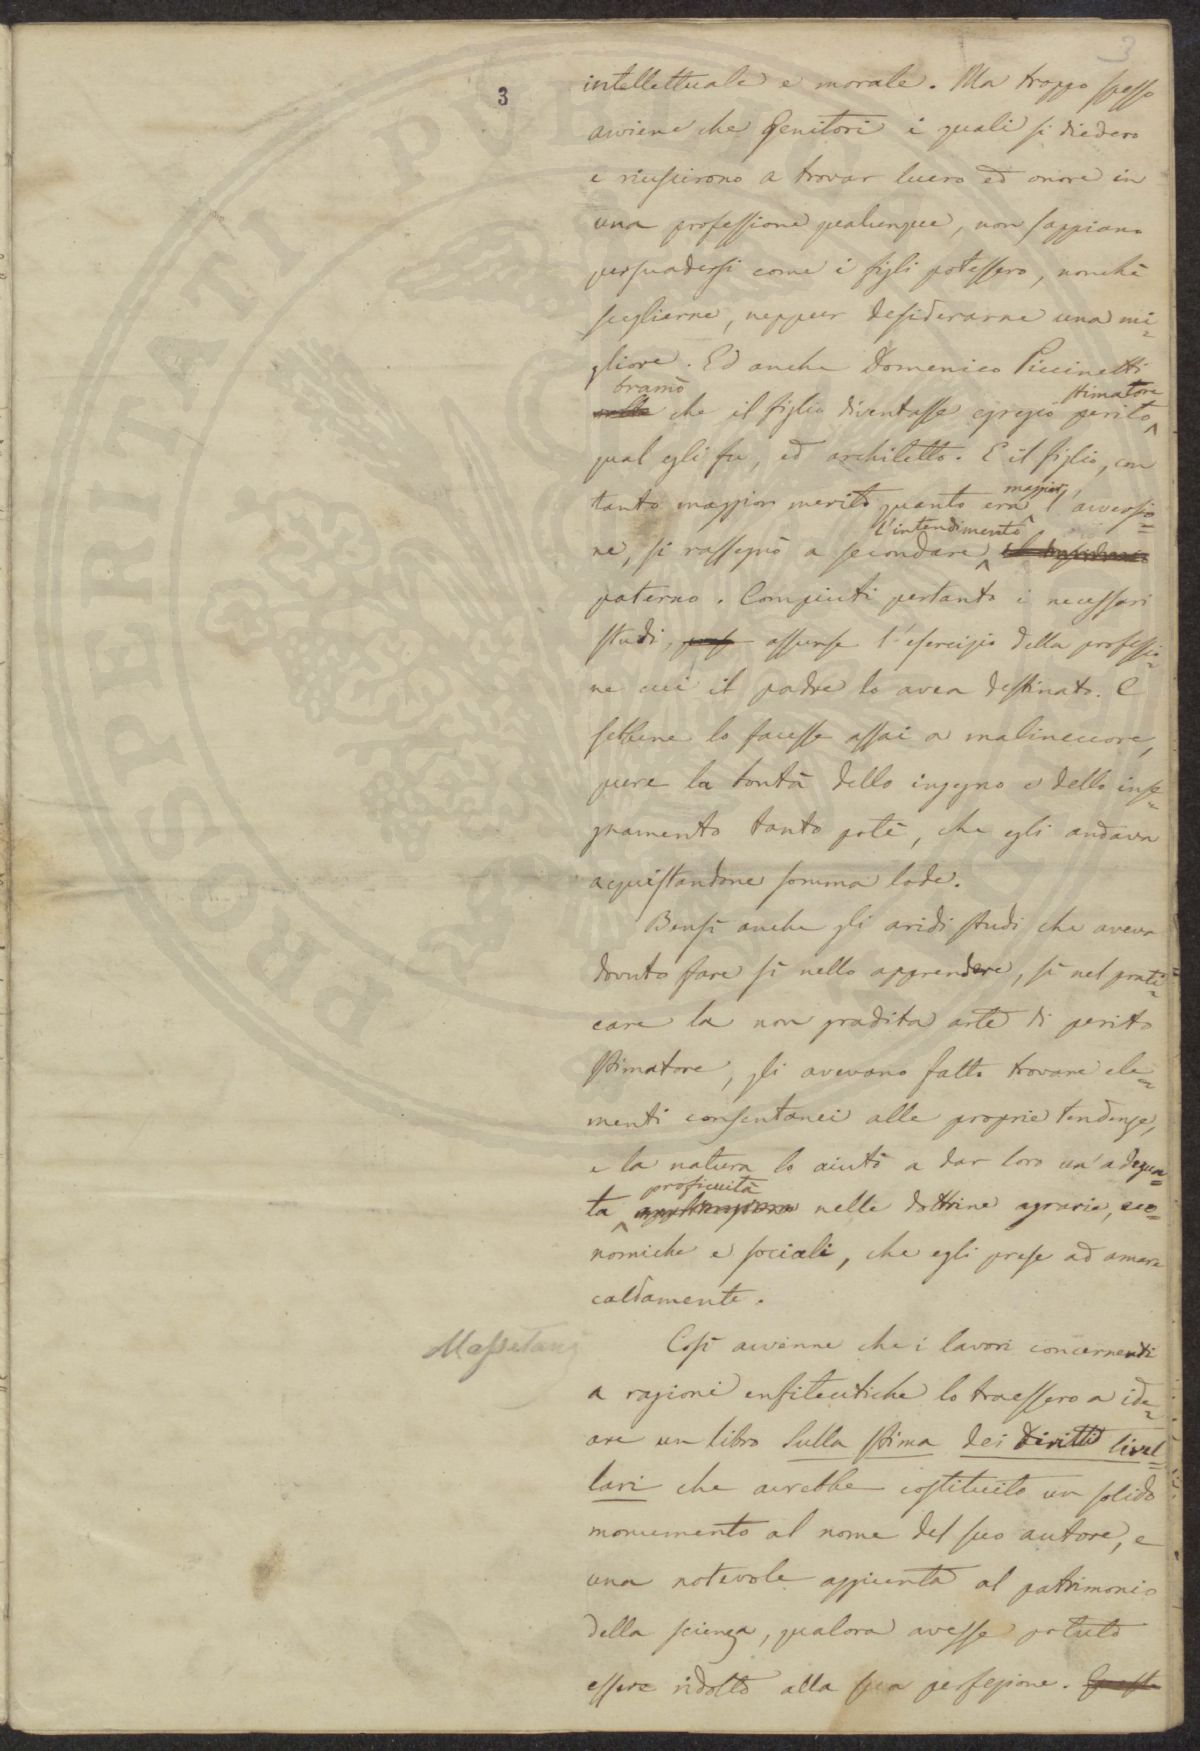 3
3
intellettuale e morale. Ma troppo spesso
avviene che Genitori i quali si diedero
e riuscirono a trovar lucro ed onore in
una professione qualunque, non sappiano
persuadersi come i figli potessero, nonchè
sceglierne, neppur desiderarne una mi=
gliore. Ed anche Domenico Piccinetti
bramò stimatore
volle che il figlio diventasse egregio perito
qual egli fu, ed architetto. E il figlio, con
tanto maggior merito quanto era maggior l'avversio=
l'intendimento
ne, si rassegnò a secondare
paterno. Compiuti pertanto i necessari
studi, assunse l'esercizio della professio=
ne cui il padre lo avea destinato. E
sebbene lo facesse assai a malincuore,
pure la bontà dello ingegno e dello inse=
gnamento tanto potè, che egli andava
acquistandone somma lode.
Bensì anche gli aridi studi che aveva
dovuto fare sì nello apprendere, sì nel prati=
care la non gradita arte di perito
stimatore, gli avevano fatto trovare ele=
menti consentanei alle proprie tendenze,
e la natura lo aiutò a dar loro un'adegua=
proficuità
ta nelle dottrine agrarie, eco=
nomiche e sociali, che egli prese ad amare
caldamente.
Massetani
Così avvenne che i lavori concernenti
a ragioni enfiteutiche lo traessero a ide=
are un libro Sulla stima dei diritti livel=
lari che avrebbe costituito un solido
monumento al nome del suo autore, e
una notevole aggiunta al patrimonio
della scienza, qualora avesse potuto
essere ridotto alla sua perfezione. Questo
PROSPERITATI PUBLICAE